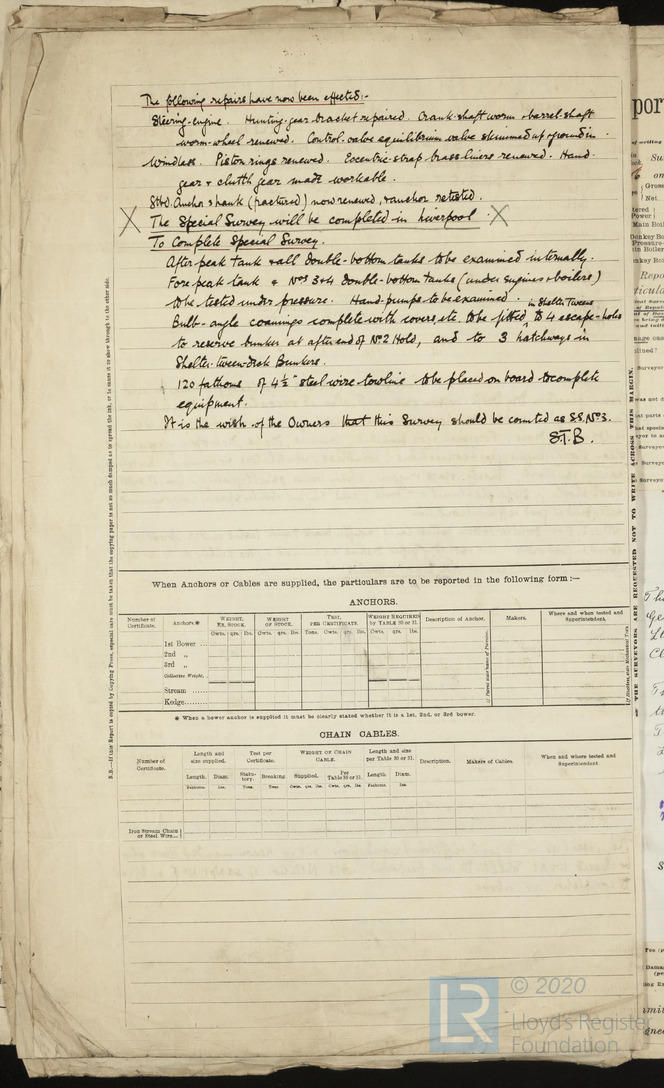 The following repairs have now been effected:-
Steering-engine. Hunting-gear bracket repaired. Crank-shaft worm & barrel-shaft
worm-wheel renewed. Control-valve equilibrium valve skimmed up & ground in.
Windlass. Piston rings renewed. Eccentric-strap brass liners renewed. Hand
gear & clutch gear made workable.
Stbd. Anchor shank (fractured) now renewed, & anchor retested.
X The Special Survey will be completed in Liverpool. X
To Complete Special Survey.
After peak tank & all double-bottom tanks to be examined internally.
Fore peak tank & Nos 3 & 4 double-bottom tanks (under engines & boilers)
to be tested under pressure. Hand-pumps to be examined.
in Shelter Tweens
Bulb-angle coamings complete with covers, etc. to be fitted to 4 escape-holes
to reserve bunker at after end of No 2 Hold, and to 3 hatchways in
Shelter-tween-deck Bunkers.
120 fathoms of 4½" steel wire towline to be placed on board to complete
equipment.
It is the wish of the Owners that this Survey should be counted as S.S. No 3.
S.T.B.
When Anchors or Cables are supplied, the particulars are to be reported in the following form :—
ANCHORS.
Number of Certificate. Anchors.* Weight, Ex. Stock. Weight of Stock. Test, per Certificate. Weight Required by Table 30 or 31. Description of Anchor. Makers. Where and when tested and Superintendent.
Cwts. qrs. lbs. Cwts. qrs. lbs. Tons. Cwts. qrs. lbs. Cwts. qrs. lbs.
1st Bower ...
2nd „
3rd „
Collective Weight.
Stream ......
Kedge......
* When a bower anchor is supplied it must be clearly stated whether it is a 1st, 2nd, or 3rd bower.
CHAIN CABLES.
Number of Certificate. Length and size supplied. Test per Certificate. Weight of Chain Cable. Length and size per Table 30 or 31. Description. Makers of Cables. When and where tested and Superintendent.
Length. Diam. Statutory. Breaking. Supplied. Per Table 30 or 31. Length. Diam.
Fathoms. Ins. Tons. Tons. Cwts. qrs. lbs. Cwts. qrs. lbs. Fathoms. Ins.
Iron Stream Chain or Steel Wire...
N.B.—If this Report is copied by Copying Press, especial care must be taken that the copying paper is not so much damped as to spread the ink, or to cause it to show through to the other side.
THE SURVEYORS ARE REQUESTED NOT TO WRITE ACROSS THIS MARGIN.
LR © 2020
Lloyd's Register
Foundation